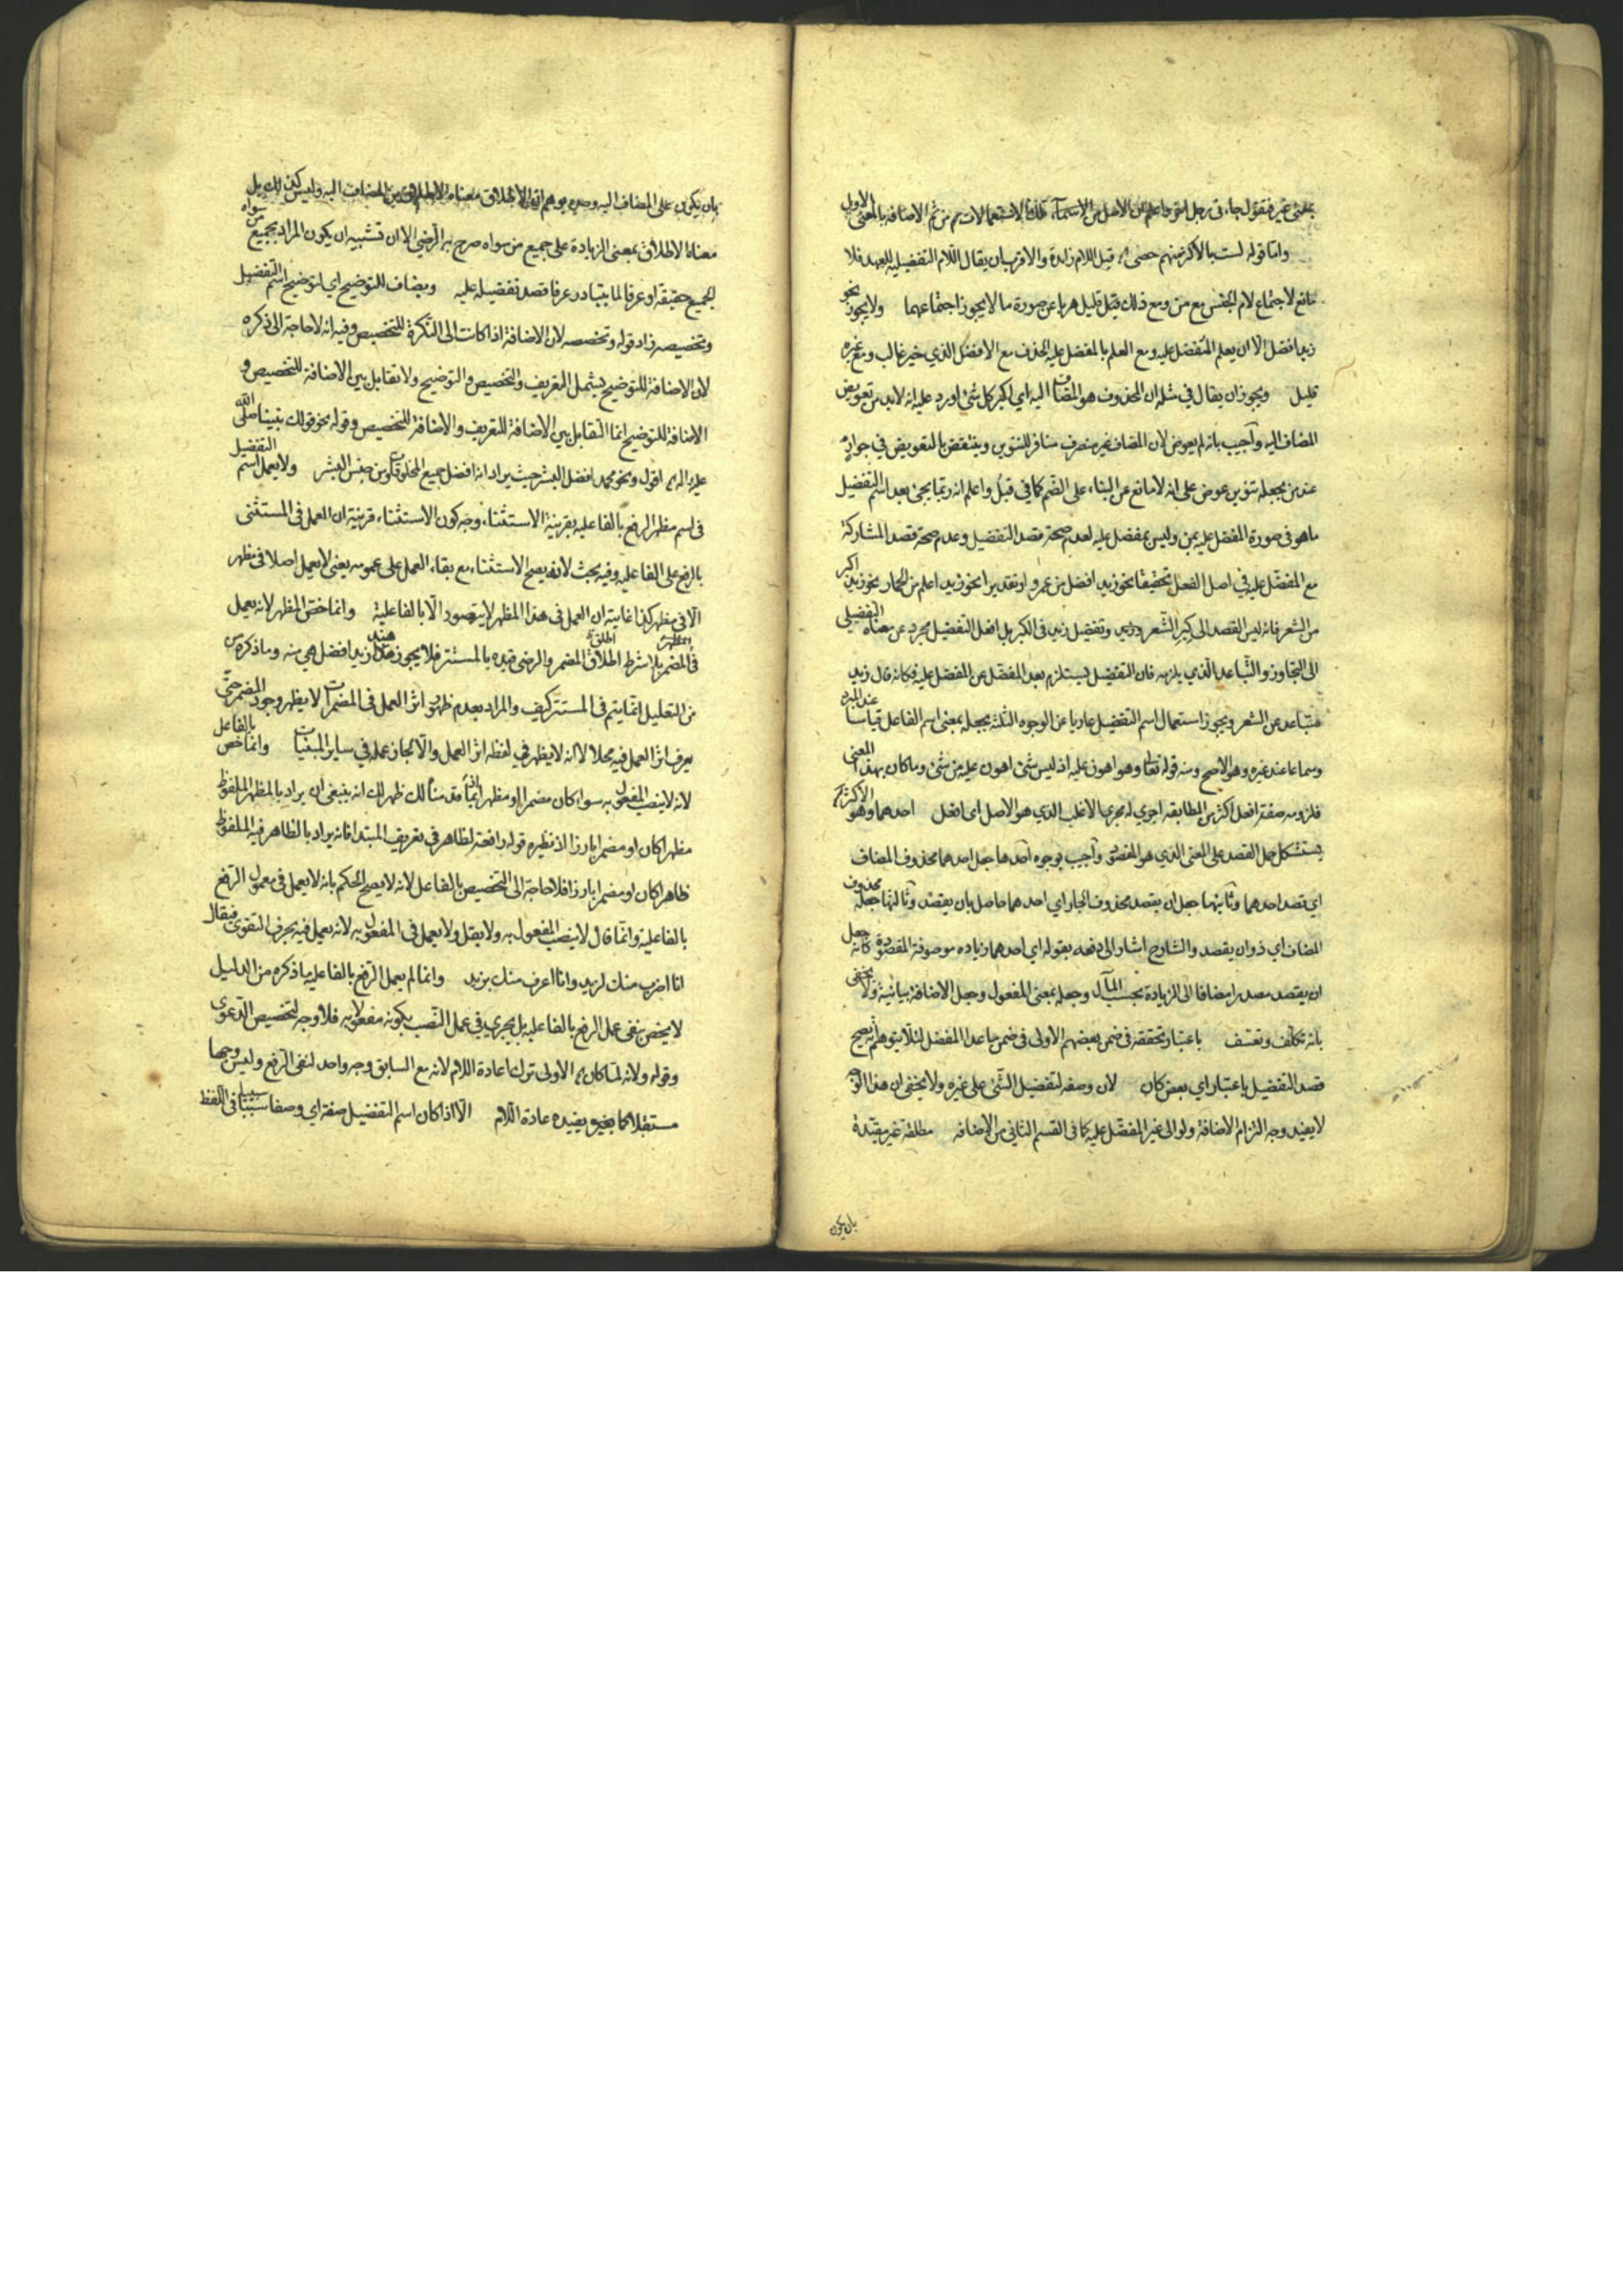 بمعنى غير فنقول جاءنى رجل اخر حاعلم ان الاصل من الاسماء تلك الاستعمالات ثم من ثم الاضافة بالمعنى الاول
واما قوله لست بالاكثر منهم حصى قيل اللام زائدة والاقرب ان يقال اللام التفضيلية للعهد فلا
مانع لاجتماع لام الجنس مع من ومع ذلك قيل قليل هربا عن صورة ما لا يجوز اجتماعهما ولا يجوز نحو
زيد افضل الا ان يعلم المفضل عليه ومع العلم بالمفضل عليه الحذف مع الافضل الذي خبر غالب ومع غيره
قليل ويجوز ان يقال في مثله ان المحذوف هو المضاف اليه اى اكبر كل شئ اورد عليه انه لابد من تعويض
المضاف اليه واجيب بانه لم يعوض لان المضاف غير منصرف مناف للتنوين وينتقض بالتعويض في جوار
عند من يجعله تنوين عوض على انه لا مانع عن البناء على الضم كما في قبل واعلم انه ربما يجئ بعد اسم التفضيل
ما هو فى صورة المفضل عليه بمن وليس بمفضل عليه لعدم صحة قصد التفضيل وعدم صحة قصد المشاركة
مع المفضل عليه في اصل الفعل تحقيقا نحو زيد افضل من عمرو او تقديرا نحو زيد اعلم من الحمار نحو زيد اكبر
من الشعر فانه ليس القصد الى كبر الشعر وزيد وتفضيل زيد فى الكبر بل افعل التفضيل مجرد عن معناه التفضيلى
الى التجاوز والتباعد الذي يلزمه فان التفضيل يستلزم بعد المفضل عن المفضل عليه فكانه قال زيد
متباعد من الشعر ويجوز استعمال اسم التفضيل عاريا عن الوجوه الثلثة بجعله بمعنى اسم الفاعل قياسا عند المبرد
وسماعا عند غيره وهو الاصح ومنه قوله تعا وهو اهون عليه اذ ليس شئ اهون عليه من شئ وما كان بهذا المعنى
فلزومه صفة افعل اكثر من المطابقة اجرى له مجرى الاغلب الذي هو الاصل اى افعل احدهما وهو الاكثر
يستشكل حمل القصد على المعنى الذي هو المقصود واجيب بوجوه احدها جعل احدهما محذوف المضاف
اي قصد احدهما وثانيها جعل ان يقصد محذوف الجار اي احدهما حاصل بان يقصد وثالثها جعله محذوف
المضاف اي ذو ان يقصد والشارح اشار الى دفعه بقوله اي احدهما زيادة موصوفة مقصودة كانه جعل
ان يقصد مصدرا مضافا الى الزيادة بحسب المآل وجعله بمعنى المفعول وجعل الاضافة بيانية ولا يخفى
بانه تكلف وتعسف باعتبار تحققه فى ضمن بعضهم الاولى فى ضمن ما عدا المفضل لئلا يتوهم انه يصح
قصد التفضيل باعتبار اي بعض كان لان وصفه لتفضيل الشئ على غيره ولا يخفى ان هذا الوجه
لا يفيد وجه التزام الاضافة ولو الى غير المفضل عليه كما فى القسم الثانى من الاضافه مطلقة غير مقيدة
بان يكون
بان يكون على المضاف اليه وحده يوهم ان الاطلاق معناه الاطلاق عن المضاف اليه وليس كذلك بل
معناه الاطلاق بمعنى الزيادة على جميع من سواه صرح به الرضى الا ان تشبيه ان يكون المراد بجميع من سواه
لجميع حقيقة او عرفا لما يتبادر عرفا قصد تفضيله عليه ويضاف للتوضيح اي لتوضيح اسم التفضيل
وتخصيصه زاد قوله وتخصيصه لان الاضافة اذا كانت الى النكرة للتخصيص وفيه انه لا حاجة الى ذكره
لان الاضافة للتوضيح يشمل التعريف والتخصيص والتوضيح ولا تقابل بين الاضافة للتخصيص و
الاضافة للتوضيح انما التقابل بين الاضافة للتعريف والاضافة للتخصيص وقوله نحو قولك نبينا صلى الله
عليه اله اقول ونحو محمد افضل البشر حيث يراد انه افضل جميع المخلوقات من جنس البشر ولا يعمل اسم التفضيل
فى اسم مظهر الرفع بالفاعلية بقرينة الاستثناء، وجه كون الاستثناء، قرينة ان العمل فى المستثنى
بالرفع على الفاعلية وفيه بحث لانه يصح الاستثناء مع بقاء العمل على عمومه يعنى لا يعمل اصلا فى مظهر
الا فى مظهر كذا غايته ان العمل فى هذا المظهر لا يتصور الا بالفاعلية وانما خص المظهر لانه يعمل
فى المضمر بلا شرط اطلاق المضمر والرضى قيده بالمستتر فلا يجوز هند زيد افضل هي منه وما ذكره
من التعليل انما يتم فى المستتر كيف والمراد بعدم ظهور اثر العمل فى المضمرات لا يظهر وجود المضمر حتى
يعرف اثر العمل فيه محلا لا انه لا يظهر في لفظه اثر العمل والا لجاز عمله في ساير المبنيات وانما خص بالفاعل
لانه لا ينصب المفعول به سواء كان مضمرا او مظهر اتفاقا مثالك ظهر لك انه ينبغى ان يراد بالمظهر الملفوظ
مظهرا كان او مضمرا بارزا لا نظيره قوله رافعة لظاهر فى تعريف المبتدا فانه يراد بالظاهر فيه الملفوظ
ظاهرا كان او مضمرا بارزا فلا حاجة الى التخصيص بالفاعل لانه لا يصح الحكم بانه لا يعمل فى معمول الرفع
بالفاعلية وانما قال لا ينصب المفعول به ولا يقل ولا يعمل فى المفعول به لانه يعمل فيه بحرف التقوى فيقال
انا اضرب منك لزيد وانا اعرف منك بزيد وانما لم يعمل الرفع بالفاعلية ما ذكره من الدليل
لا يخص بنفى عمل الرفع بالفاعليه بل يجرى فى عمل النصب بكونه مفعولا به فلا وجه لتخصيص الدعوى
وقوله ولانه لما كان الاولى ترك اعادة اللام لانه مع السابق وجه واحد لنفى الرفع وليس وجها
مستقلا كما يفيده عادة اللام الا اذا كان اسم التفضيل صفة اي وصفا سببيا فى اللفظ